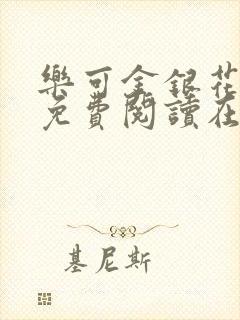 樂可金銀花
免費閱讀在
基尼斯